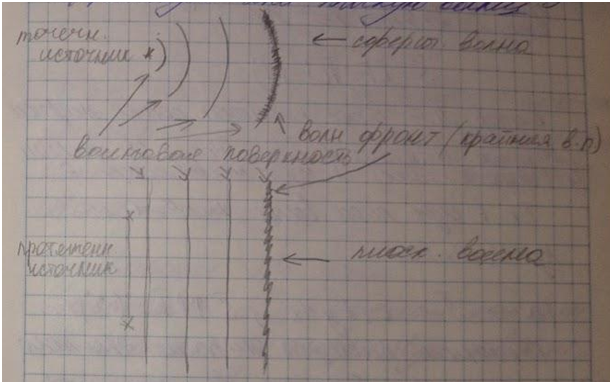 точечн.
источник
сферич. волна
волн фронт (крайняя в.п)
волновая поверхность
протяженн
источник
плоск. волна